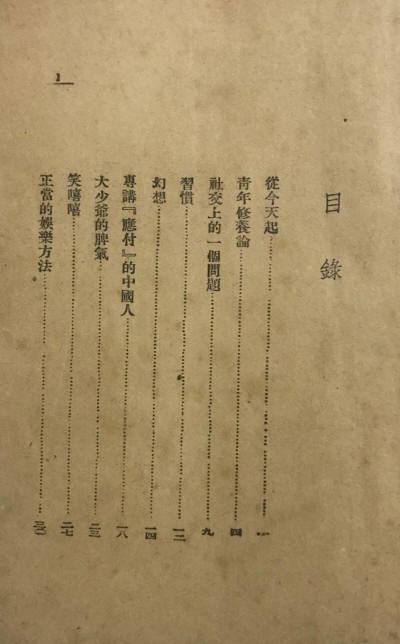 目錄
從今天起……一
青年修養論……四
社交上的一個問題……九
習慣……一二
幻想……一四
專講『應付』的中國人……一八
大少爺的脾氣……二三
笑嘻嘻……二七
正當的娛樂方法……
1